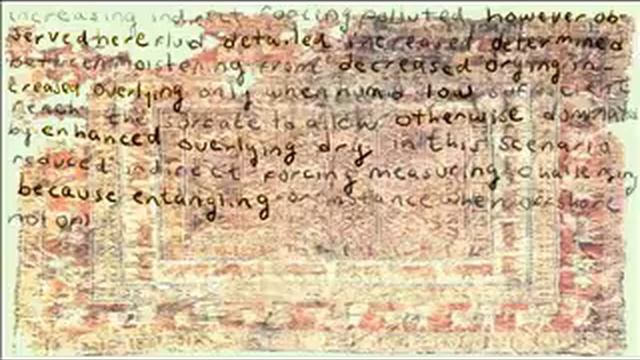 increasing indirect forcing polluted however ob-
served here flud detailed increased determined
between moistening from decreased drying in-
creased overlying only when humd low sufficient
reach the surcate to allow otherwise dominate
by enhanced overlying dry in this scenario
reduced indirect forcing measuring challenging
because entangling for instance when offshore
not onl